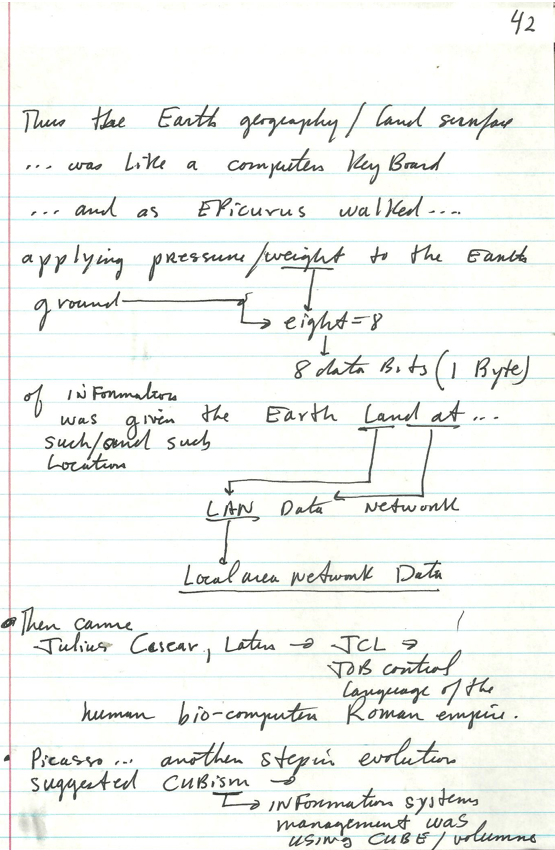 42
Thus the Earth geography / land surface
... was like a computer KeyBoard
... and as EPicurus walked....
applying pressure/weight to the Earth
ground → eight = 8
8 data Bits (1 Byte)
of INFormation
was given the Earth Land at ...
such/and such
Location
LAN Data network
Local area network Data
Then came
Julius Casear, Later → JCL →
JOB control
language of the
human bio-computer Roman empire.
• Picasso... another step in evolution
suggested CUBism →
→ INFormation systems
management was
USING CUBE / volumns